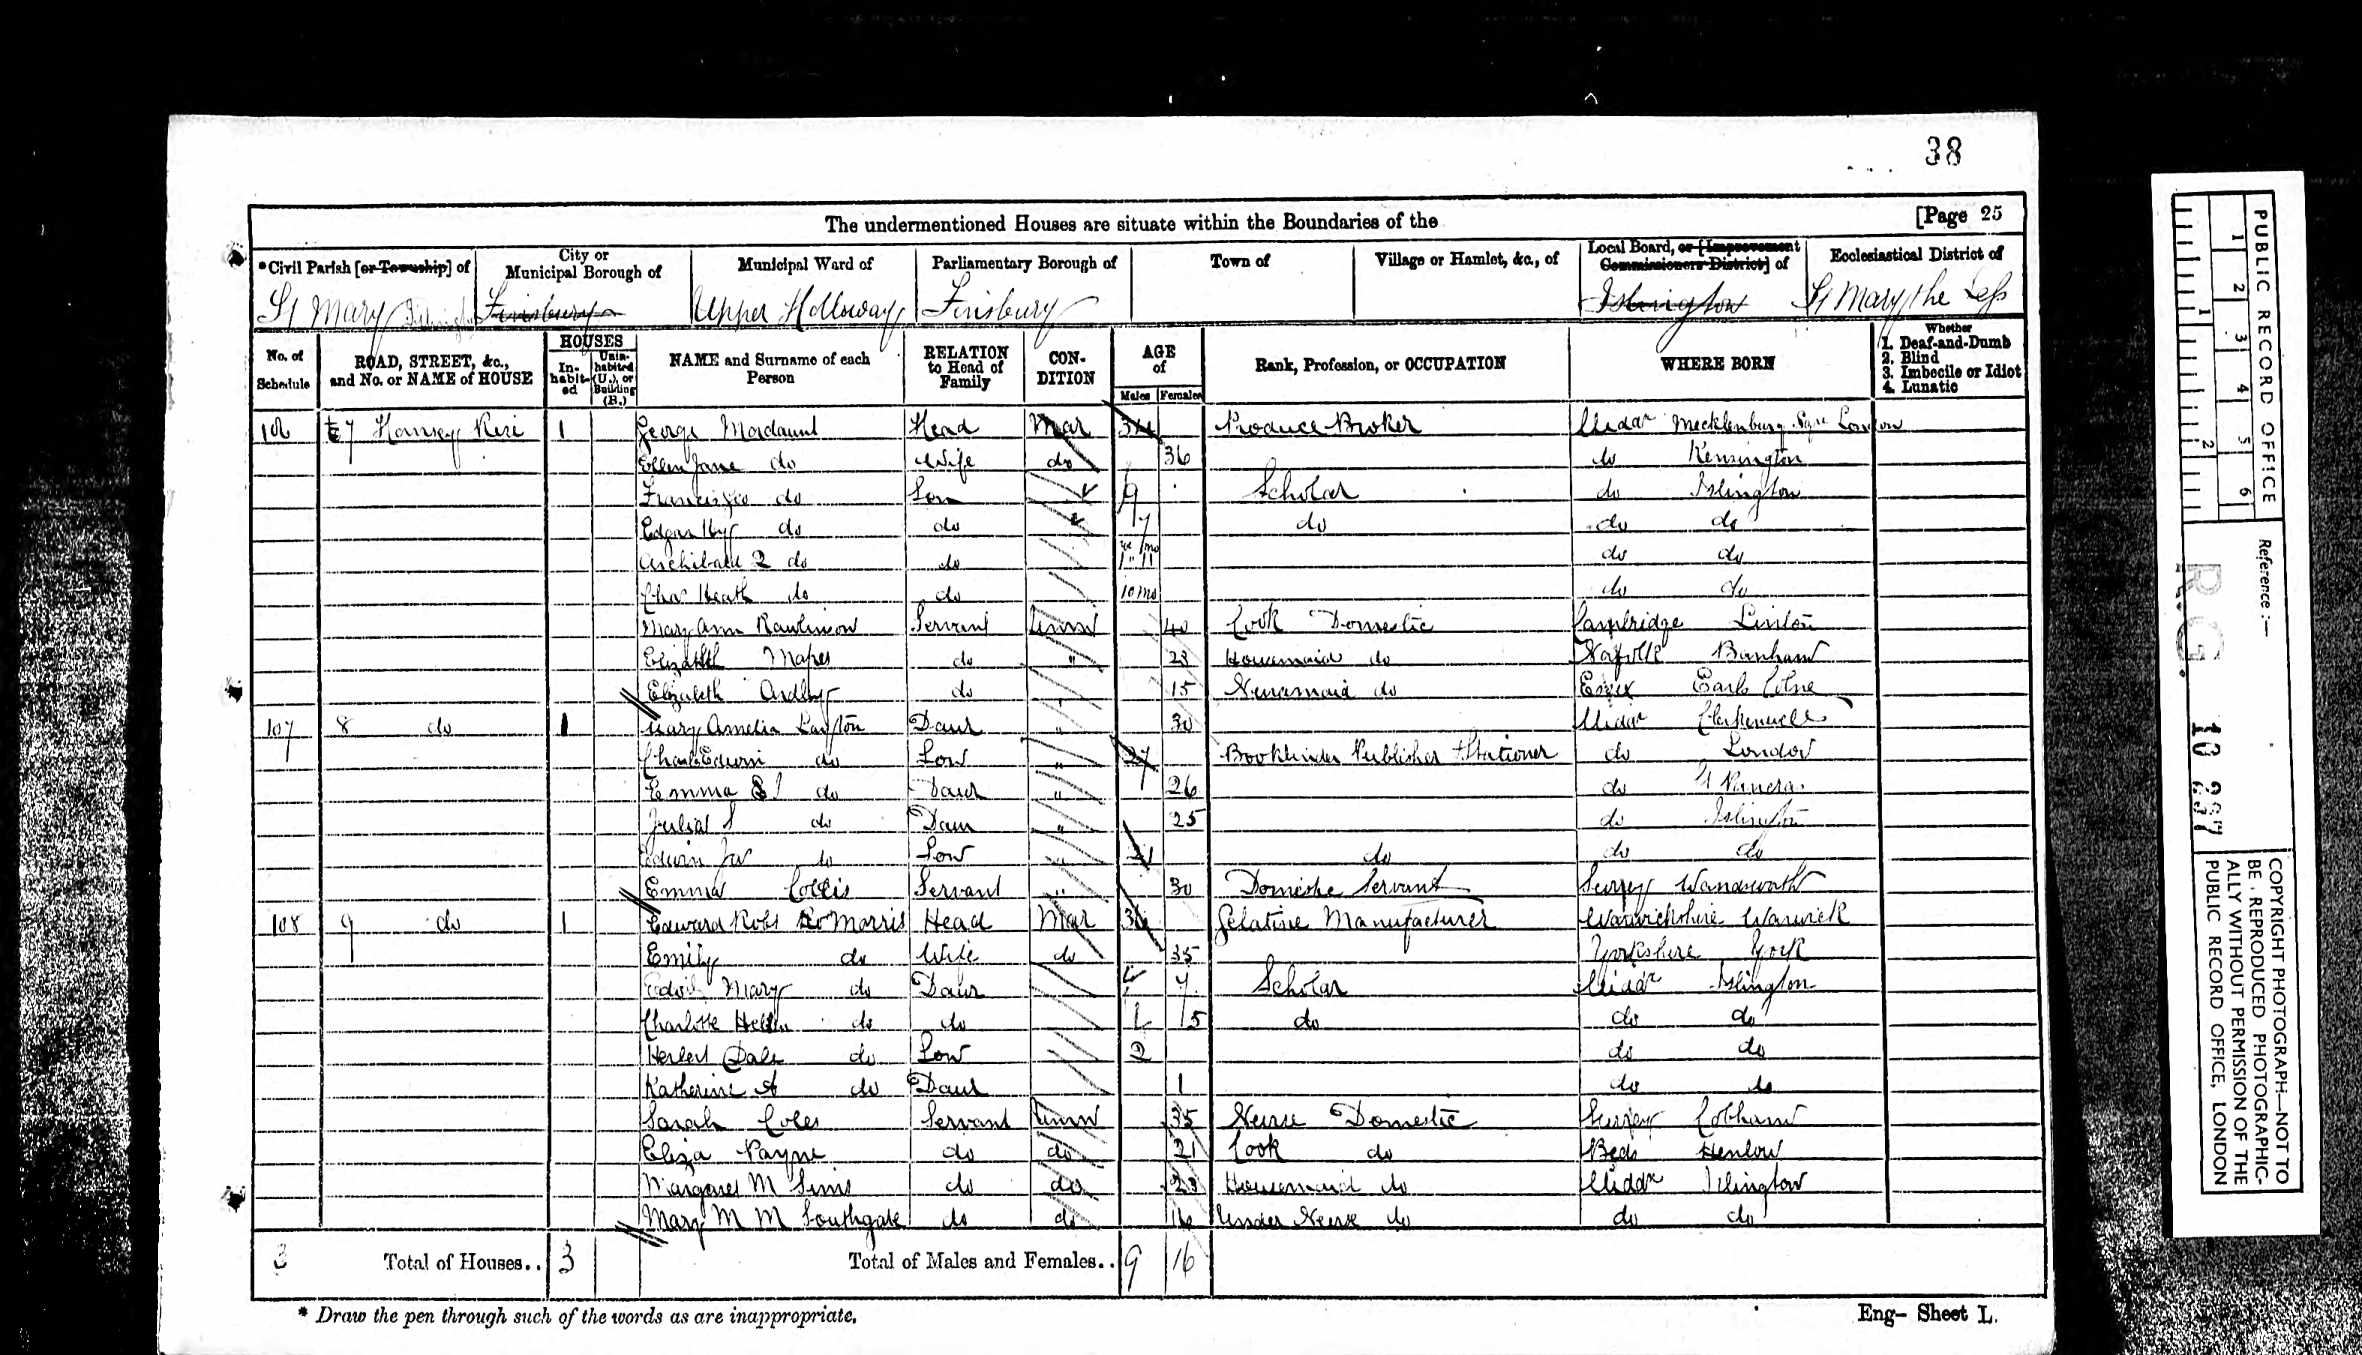 38
The undermentioned Houses are situate within the Boundaries of the
[Page 25
*Civil Parish [or Township] of
City or Municipal Borough of
Municipal Ward of
Parliamentary Borough of
Town of
Village or Hamlet, &c., of
Local Board, or [Improvement Commissioners District] of
Ecclesiastical District of
St Mary Finsbury Upper Holloway Finsbury Islington St Mary the Less
No. of Schedule
ROAD, STREET, &c., and No. or NAME of HOUSE
HOUSES
In-habit-ed
Unin-habited (U.), or Building (B.)
NAME and Surname of each Person
RELATION to Head of Family
CON-DITION
AGE of
Males Females
Rank, Profession, or OCCUPATION
WHERE BORN
Whether
1. Deaf-and-Dumb
2. Blind
3. Imbecile or Idiot
4. Lunatic
106 7 Hornsey Rise 1 George Mordaunt Head Mar 34 Produce Broker Middx Mecklenburg Sqre London
Ellen Jane do Wife do 36 do Kensington
do Son 9 Scholar do Islington
Edgar Hy do do 7 do do do
Archibald do do 1 11 do do
Chas Heath do do 10 mo do do
Mary Ann Rawlinson Servant Unm 40 Cook Domestic Cambridge Linton
Elizabeth Mapes do " 23 Housemaid do Norfolk Banham
Elizabeth do " 15 Nursemaid do Essex Earls Colne
107 8 do 1 Mary Amelia Layton Daur " 30 Middx Clerkenwell
Charles Edwin do Son " 27 Bookbinder Publisher & Stationer do London
Emma do Daur " 26 do St Pancras
Julia S do Daur " 25 do Islington
Edwin Jas do Son " 21 do do do
Emma Collis Servant " 30 Domestic Servant Surrey Wandsworth
108 9 do 1 Edward Robt Morris Head Mar 36 Gelatine Manufacturer Warwickshire Warwick
Emily do Wife do 35 Yorkshire York
Mary do Daur 7 Scholar Middx Islington
Charlotte Hellen do do 5 do do do
Herbert Dale do Son 2 do do
Katherine A do Daur 1 do do
Sarah Coles Servant Unm 35 Nurse Domestic Surrey Cobham
Eliza Payne do do 21 Cook do Beds Henlow
Margaret M Sims do do 23 Housemaid do Middx Islington
Mary M M Southgate do do 16 Under Nurse do do do
3 Total of Houses.. 3 Total of Males and Females.. 9 16
* Draw the pen through such of the words as are inappropriate.
Eng- Sheet L.
PUBLIC RECORD OFFICE
1 2 3 4 5 6
1 2
Reference :—
R.G. 10 237
COPYRIGHT PHOTOGRAPH—NOT TO
BE REPRODUCED PHOTOGRAPHIC-
ALLY WITHOUT PERMISSION OF THE
PUBLIC RECORD OFFICE, LONDON